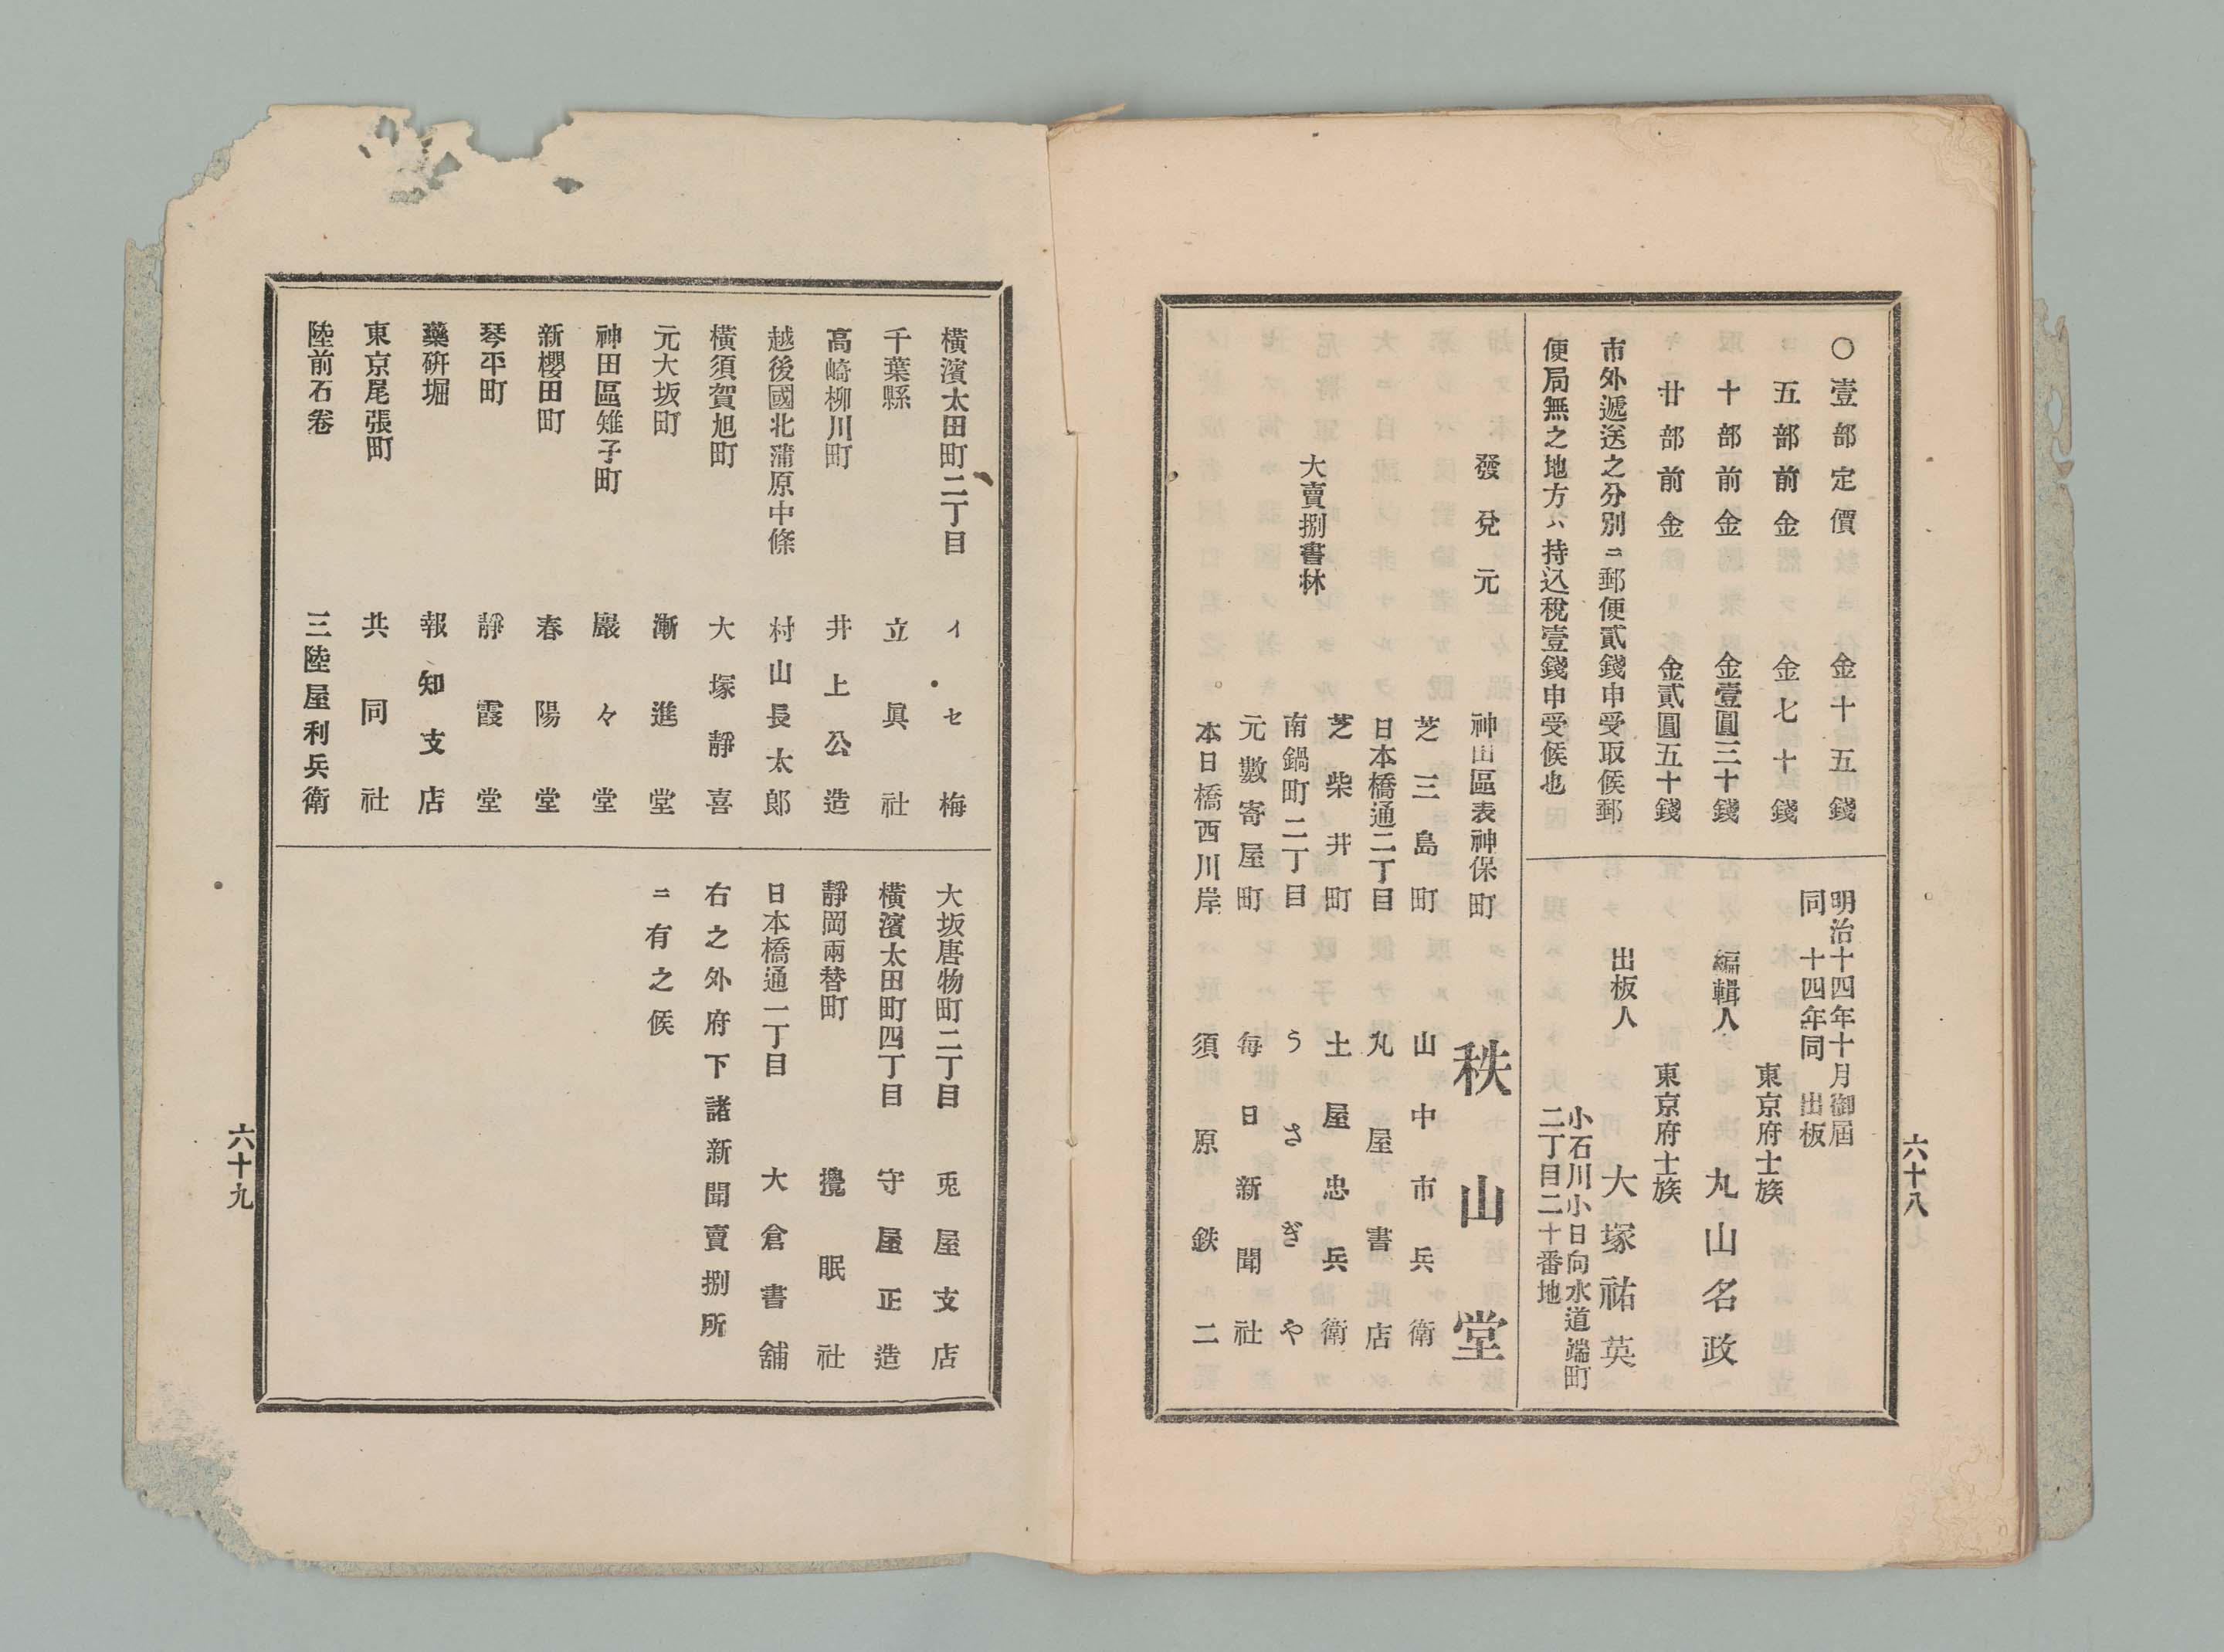 〇壹部定價　金十五錢
五部前金　金七十錢
十部前金　金壹圓三十錢
廿部前金　金貳圓五十錢
市外遞送之分別ニ郵便貳錢申受取候郵
便局無之地方ハ持込稅壹錢申受候也
明治十四年十月御屆
同　十四年同　出板
東京府士族
編輯人　丸山名政
東京府士族
出板人　大塚祐英
小石川小日向水道端町
二丁目二十番地
發兌元　神田區表神保町　秩山堂
大賣捌書林
芝三島町　山中市兵衛
日本橋通二丁目　丸屋書店
芝柴井町　土屋忠兵衛
南鍋町二丁目　うさぎや
元數寄屋町　每日新聞社
本日橋西川岸　須原鉄二
六十八
橫濱太田町二丁目　イセ梅
千葉縣　立眞社
高崎柳川町　井上公造
越後國北蒲原中條　村山長太郎
橫須賀旭町　大塚靜喜
元大坂町　漸進堂
神田區雉子町　巖々堂
新櫻田町　春陽堂
琴平町　靜霞堂
藥硏堀　報知支店
東京尾張町　共同社
陸前石卷　三陸屋利兵衛
大坂唐物町二丁目　兎屋支店
橫濱太田町四丁目　守屋正造
靜岡兩替町　攪眠社
日本橋通一丁目　大倉書舖
右之外府下諸新聞賣捌所
ニ有之候
六十九